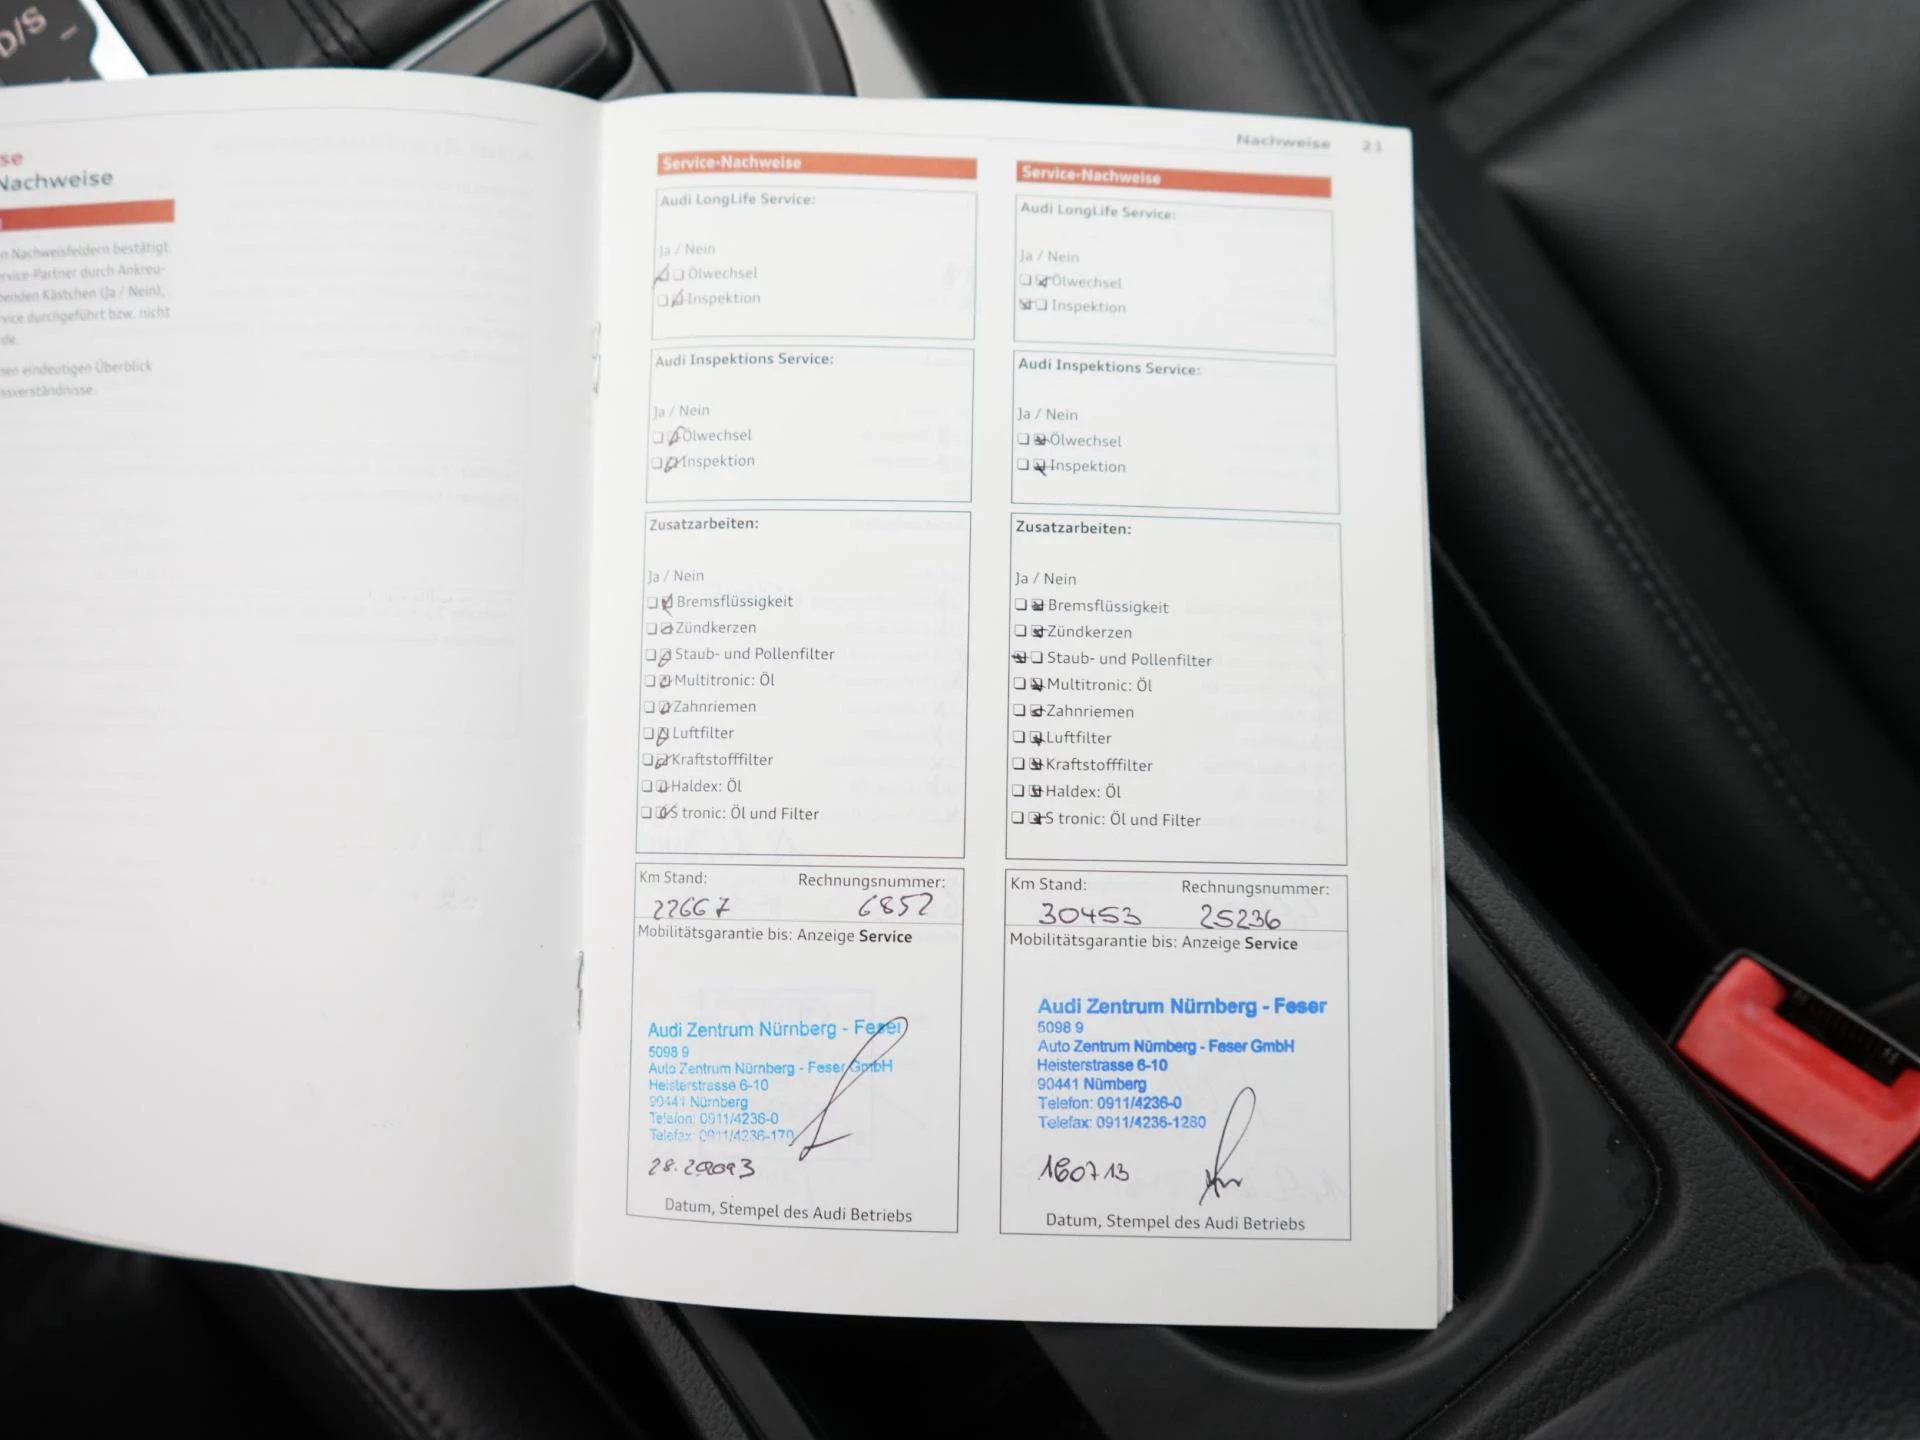 D/S
se
Nachweise
n Nachweisfeldern bestätigt.
ervice-Partner durch Ankreu-
henden Kästchen (Ja / Nein),
vice durchgeführt bzw. nicht
de.
nen eindeutigen Überblick
ssverständnisse.
Nachweise 21
Service-Nachweise
Audi LongLife Service:
Ja / Nein
Ölwechsel
Inspektion
Audi Inspektions Service:
Ja / Nein
Ölwechsel
Inspektion
Zusatzarbeiten:
Ja / Nein
Bremsflüssigkeit
Zündkerzen
Staub- und Pollenfilter
Multitronic: Öl
Zahnriemen
Luftfilter
Kraftstofffilter
Haldex: Öl
S tronic: Öl und Filter
Km Stand: Rechnungsnummer:
22667 6852
Mobilitätsgarantie bis: Anzeige Service
Audi Zentrum Nürnberg - Feser
5098 9
Auto Zentrum Nürnberg - Feser GmbH
Heisterstrasse 6-10
90441 Nürnberg
Telefon: 0911/4236-0
Telefax: 0911/4236-170
Datum, Stempel des Audi Betriebs
Service-Nachweise
Audi LongLife Service:
Ja / Nein
Ölwechsel
Inspektion
Audi Inspektions Service:
Ja / Nein
Ölwechsel
Inspektion
Zusatzarbeiten:
Ja / Nein
Bremsflüssigkeit
Zündkerzen
Staub- und Pollenfilter
Multitronic: Öl
Zahnriemen
Luftfilter
Kraftstofffilter
Haldex: Öl
S tronic: Öl und Filter
Km Stand: Rechnungsnummer:
30453 25236
Mobilitätsgarantie bis: Anzeige Service
Audi Zentrum Nürnberg - Feser
5098 9
Auto Zentrum Nürnberg - Feser GmbH
Heisterstrasse 6-10
90441 Nürnberg
Telefon: 0911/4236-0
Telefax: 0911/4236-1280
160713
Datum, Stempel des Audi Betriebs